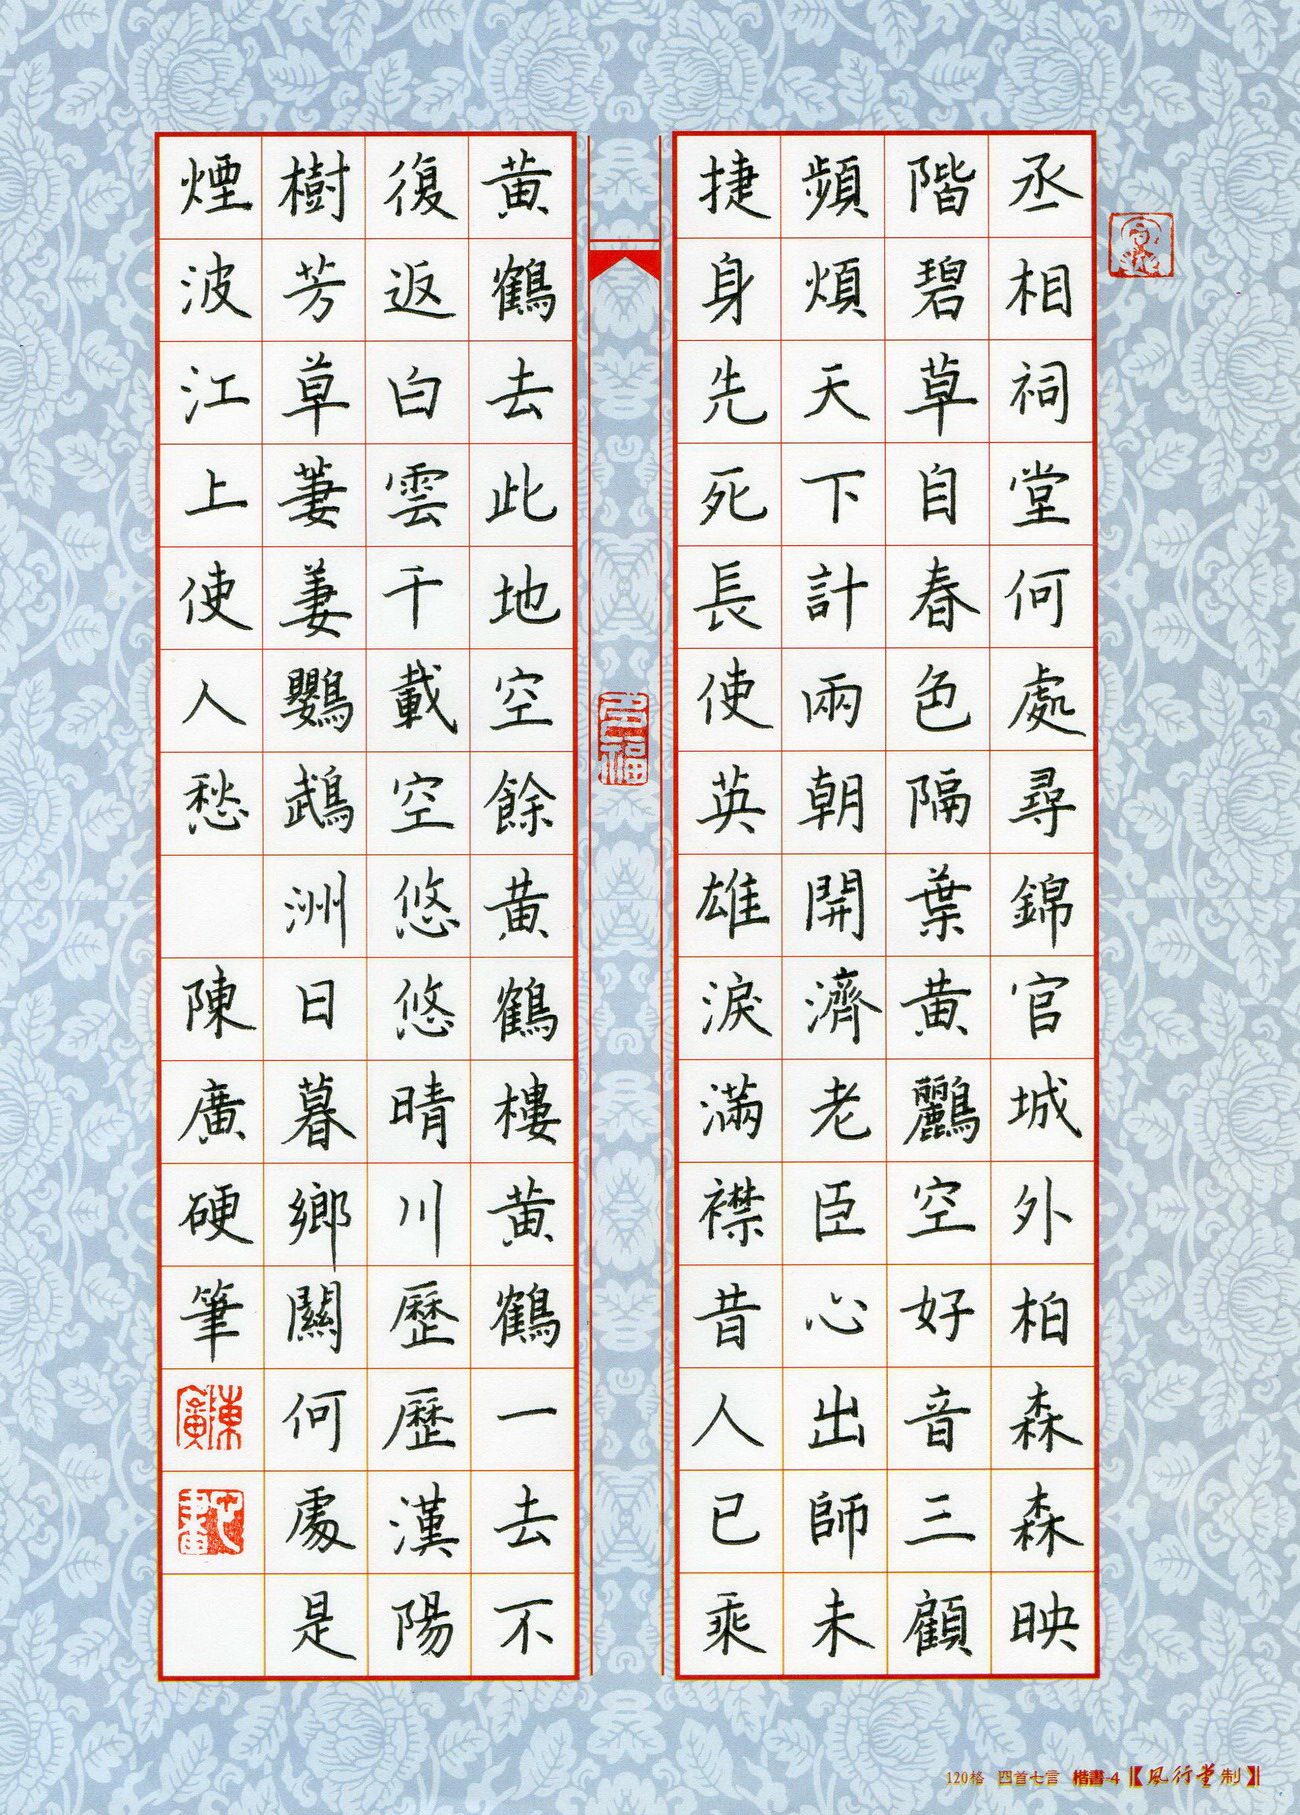 丞相祠堂何處尋錦官城外柏森森映
階碧草自春色隔葉黄鸝空好音三顧
頻煩天下計兩朝開濟老臣心出師未
捷身先死長使英雄淚滿襟昔人已乘
多福
黄鶴去此地空餘黄鶴樓黄鶴一去不
復返白雲千載空悠悠晴川歷歷漢陽
樹芳草萋萋鸚鵡洲日暮鄉關何處是
煙波江上使人愁 陳廣硬筆
陳廣
120格 四首七言 楷書-4【風行堂制】